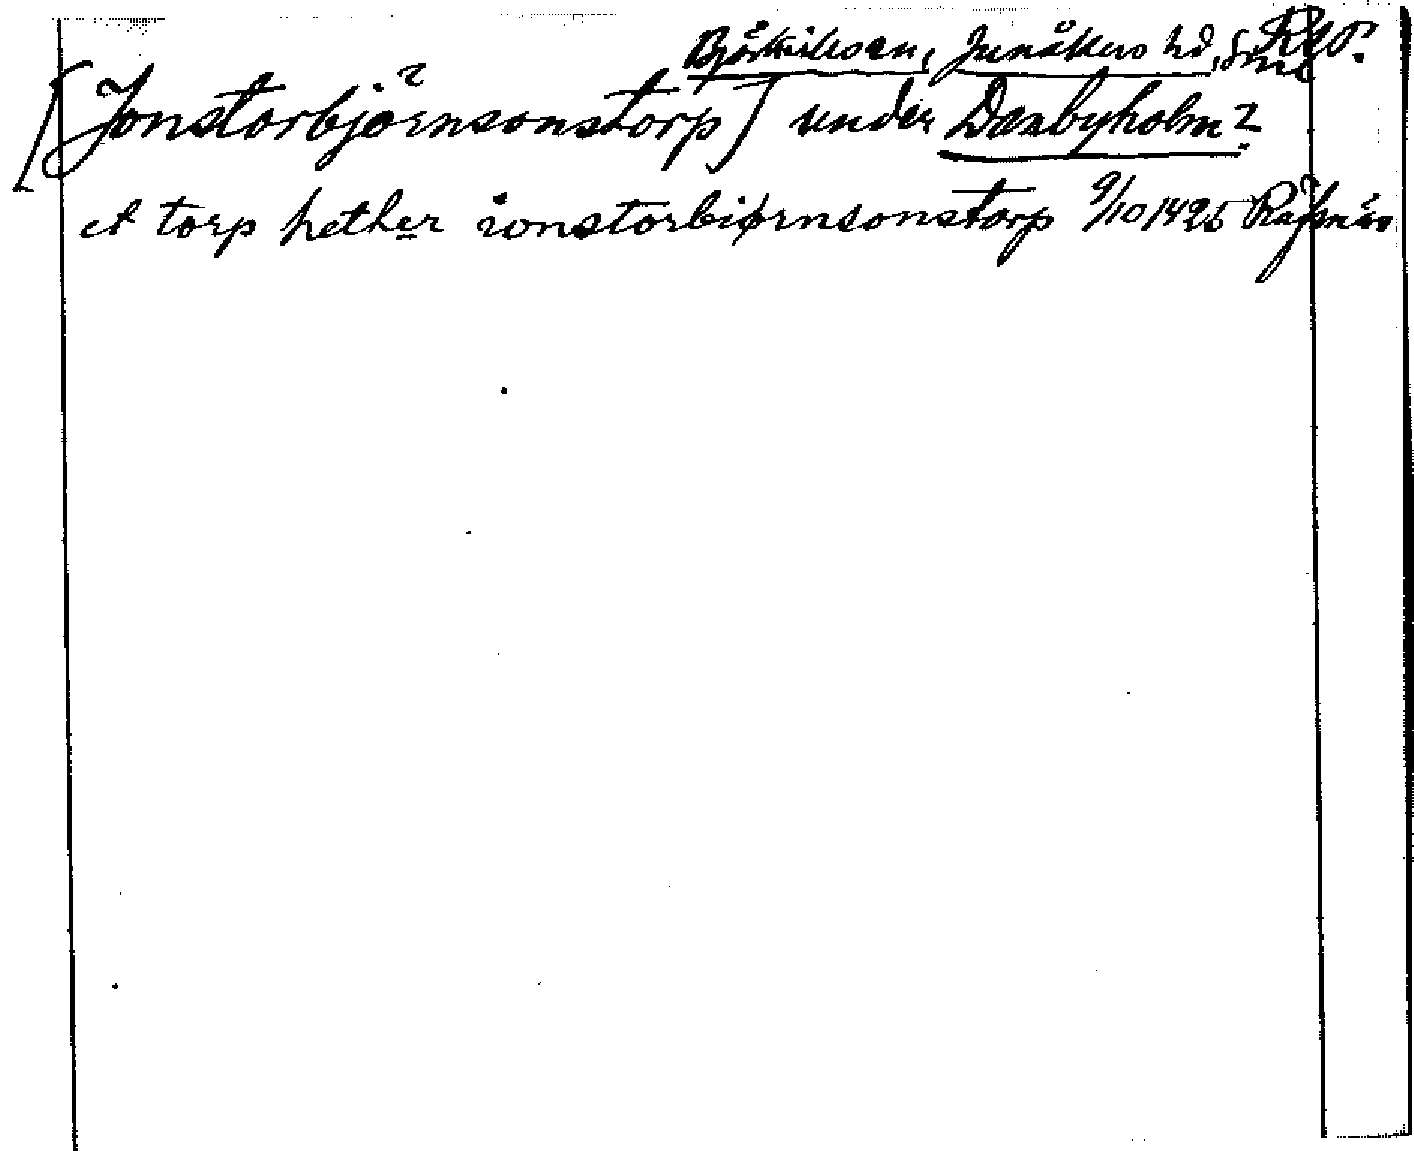 Björkviks sn, Jonåkers hd, Srml RGP.
[Jonstorbjörnsonstorp] under Danbyholm?
et torp hether ionstorbiørnsonstorp 9/10 1425 Räfsnäs